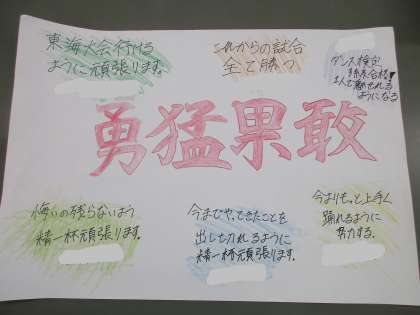 東海大会行ける
ように頑張ります。
これからの試合
全て勝つ
ダンス検定
合格!
ようになる
勇猛果敢
悔いの残らないよう
精一杯頑張ります。
今までやってきたことを
出しきれるように
精一杯頑張ります。
今よりもっと上手く
踊れるように
努力する。